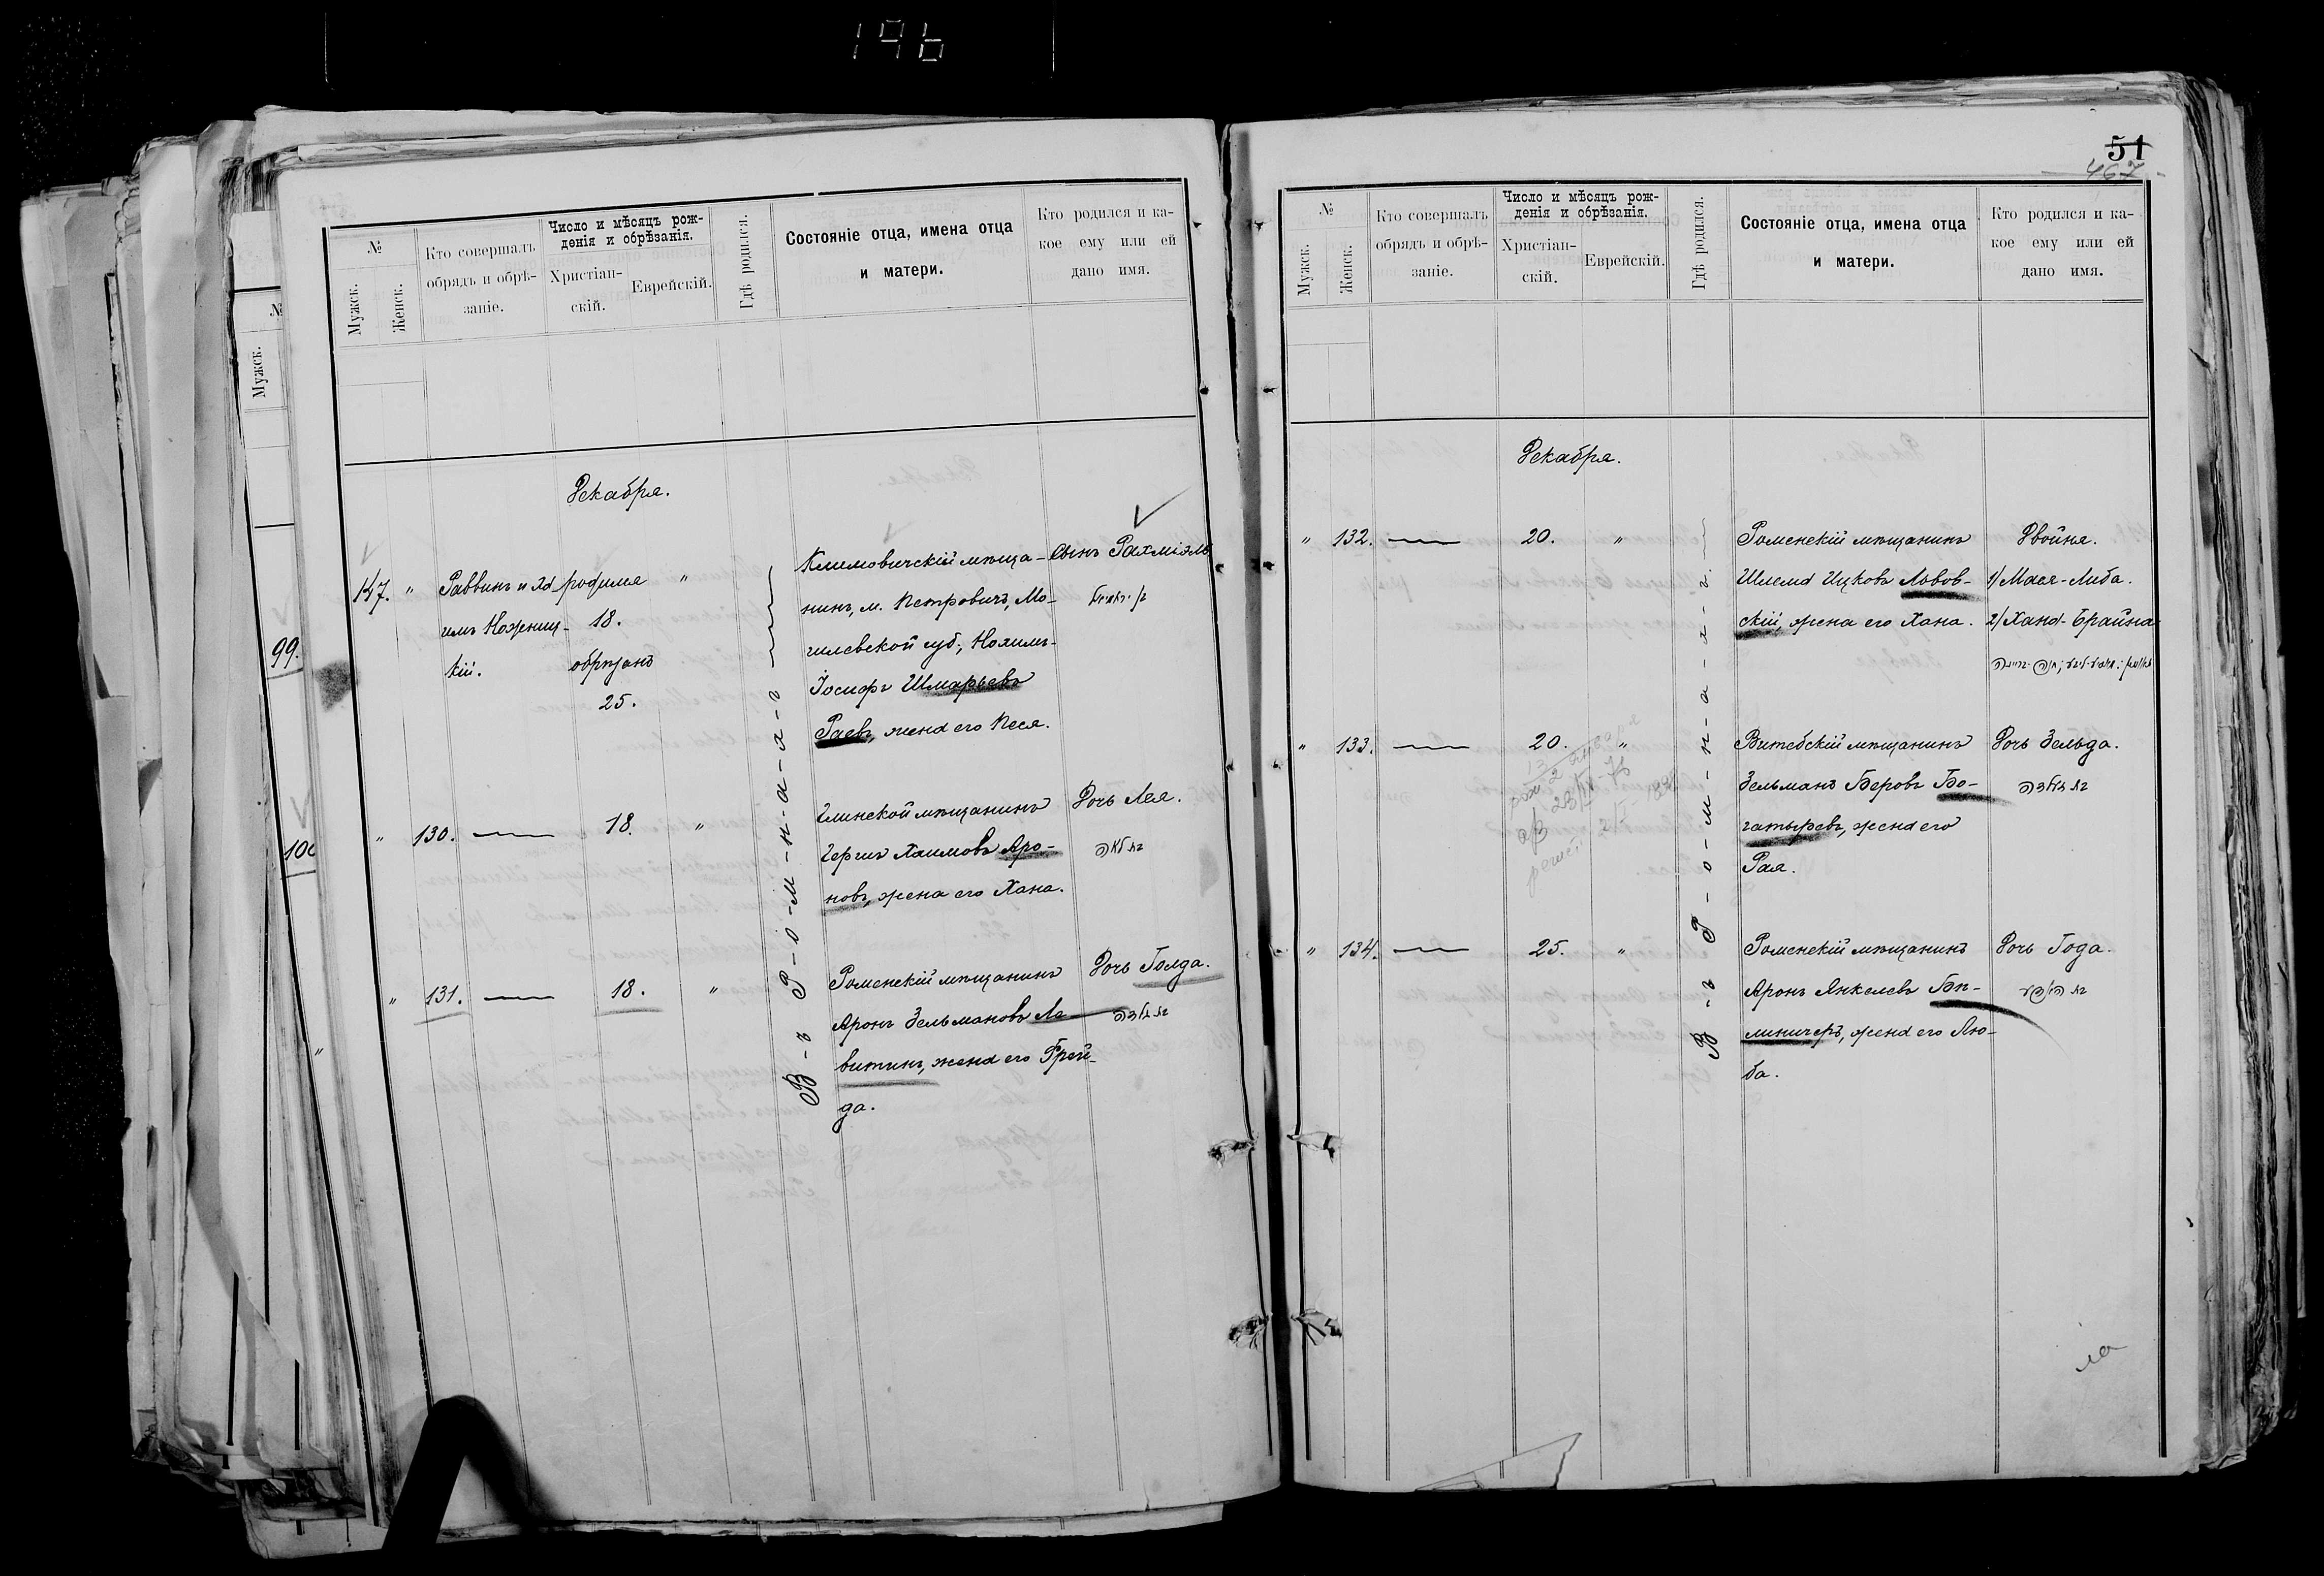 196
№
Мужск.
99.
100
№
Мужск.
Женск.
Кто совершалъ
обрядъ и обрѣ-
заніе.
Число и мѣсяцъ рож-
денія и обрѣзанія.
Христіан-
скій.
Еврейскій.
Гдѣ родился.
Состояніе отца, имена отца
и матери.
Кто родился и ка-
кое ему или ей
дано имя.
Декабря.
147. " Раввинъ и Іо родился "
18.
кій. обрѣзанъ
25.
Климовичскій мѣща-
нинъ, м. Петровичъ, Мо-
гилевской губ., Нохимъ-
Іосифъ Шмарьевъ
Раевъ, жена его Песя.
Сынъ Рахміэль
" 130. — 18. "
Глинской мѣщанинъ
Гершъ Хаимовъ Аро-
новъ, жена его Хана.
Дочь Лея.
בת לאה
" 131. — 18. "
Роменскій мѣщанинъ
Аронъ Зельмановъ Ле-
витинъ, жена его Фрей-
да.
Дочь Голда.
В-ъ Р-о-м-н-а-х-ъ
51
467
№
Мужск.
Женск.
Кто совершалъ
обрядъ и обрѣ-
заніе.
Число и мѣсяцъ рож-
денія и обрѣзанія.
Христіан-
скій.
Еврейскій.
Гдѣ родился.
Состояніе отца, имена отца
и матери.
Кто родился и ка-
кое ему или ей
дано имя.
Декабря.
" 132. — 20. "
Роменскій мѣщанинъ
Шлема Ицковъ Львов-
скій, жена его Хана.
Двойня.
1/ Мася-Либа.
2/ Хана-Брайна
" 133. — 20. "
Витебскій мѣщанинъ
Зельманъ Беровъ Бо-
гатыревъ, жена его
Рая.
Дочь Зельда.
בת זעלדה
" 134. — 25. "
Роменскій мѣщанинъ
Аронъ Янкелевъ Бѣ-
линичеръ, жена его Лю-
ба.
Дочь Года.
В-ъ Р-о-м-н-а-х-ъ